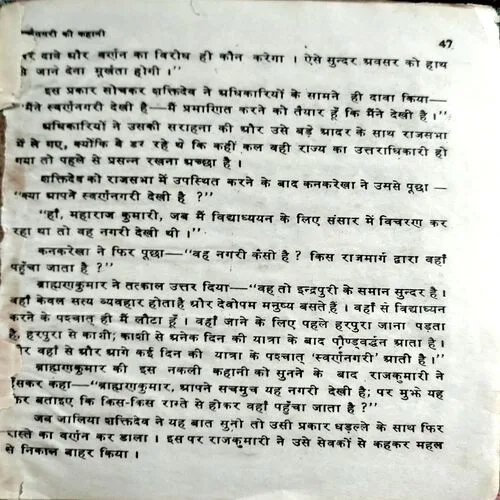 नगरी की कहानी
47
दावे और वर्णन का विरोध ही कौन करेगा । ऐसे सुन्दर अवसर को हाथ
से जाने देना मूर्खता होगी ।"
इस प्रकार सोचकर शक्तिदेव ने अधिकारियों के सामने ही दावा किया—
"मैंने स्वर्णनगरी देखी है—मैं प्रमाणित करने को तैयार हूँ कि मैंने देखी है ।"
अधिकारियों ने उसकी सराहना की और उसे बड़े आदर के साथ राजसभा
में ले गए, क्योंकि वे डर रहे थे कि कहीं कल वही राज्य का उत्तराधिकारी हो
गया तो पहले से प्रसन्न रखना अच्छा है ।
शक्तिदेव को राजसभा में उपस्थित करने के बाद कनकरेखा ने उमसे पूछा—
"क्या आपने स्वर्णनगरी देखी है ?"
"हाँ, महाराज कुमारी, जब मैं विद्याध्ययन के लिए संसार में विचरण कर
रहा था तो वह नगरी देखी थी ।"
कनकरेखा ने फिर पूछा—"वह नगरी कैसी है ? किस राजमार्ग द्वारा वहाँ
पहुँचा जाता है ?"
ब्राह्मणकुमार ने तत्काल उत्तर दिया—"वह तो इन्द्रपुरी के समान सुन्दर है ।
वहाँ केवल सत्य व्यवहार होता है और देवोपम मनुष्य बसते हैं । वहाँ से विद्याध्यन
करने के पश्चात् ही मैं लौटा हूँ । वहाँ जाने के लिए पहले हरपुरा जाना पड़ता
है, हरपुरा से काशी; काशी से अनेक दिन की यात्रा के बाद पौण्ड्वर्द्धन आता है ।
और वहाँ से और आगे कई दिन की यात्रा के पश्चात् 'स्वर्णनगरी' आती है ।"
ब्राह्मणकुमार की इस नकली कहानी को सुनने के बाद राजकुमारी ने
हँसकर कहा—"ब्राह्मणकुमार, आपने सचमुच यह नगरी देखी है; पर मुझे यह
फिर बताइए कि किस-किस रास्ते से होकर वहाँ पहुँचा जाता है ?"
जब जालिया शक्तिदेव ने यह बात सुनी तो उसी प्रकार धड़ल्ले के साथ फिर
रास्ते का वर्णन कर डाला । इस पर राजकुमारी ने उसे सेवकों से कहकर महल
से निकाल बाहर किया ।